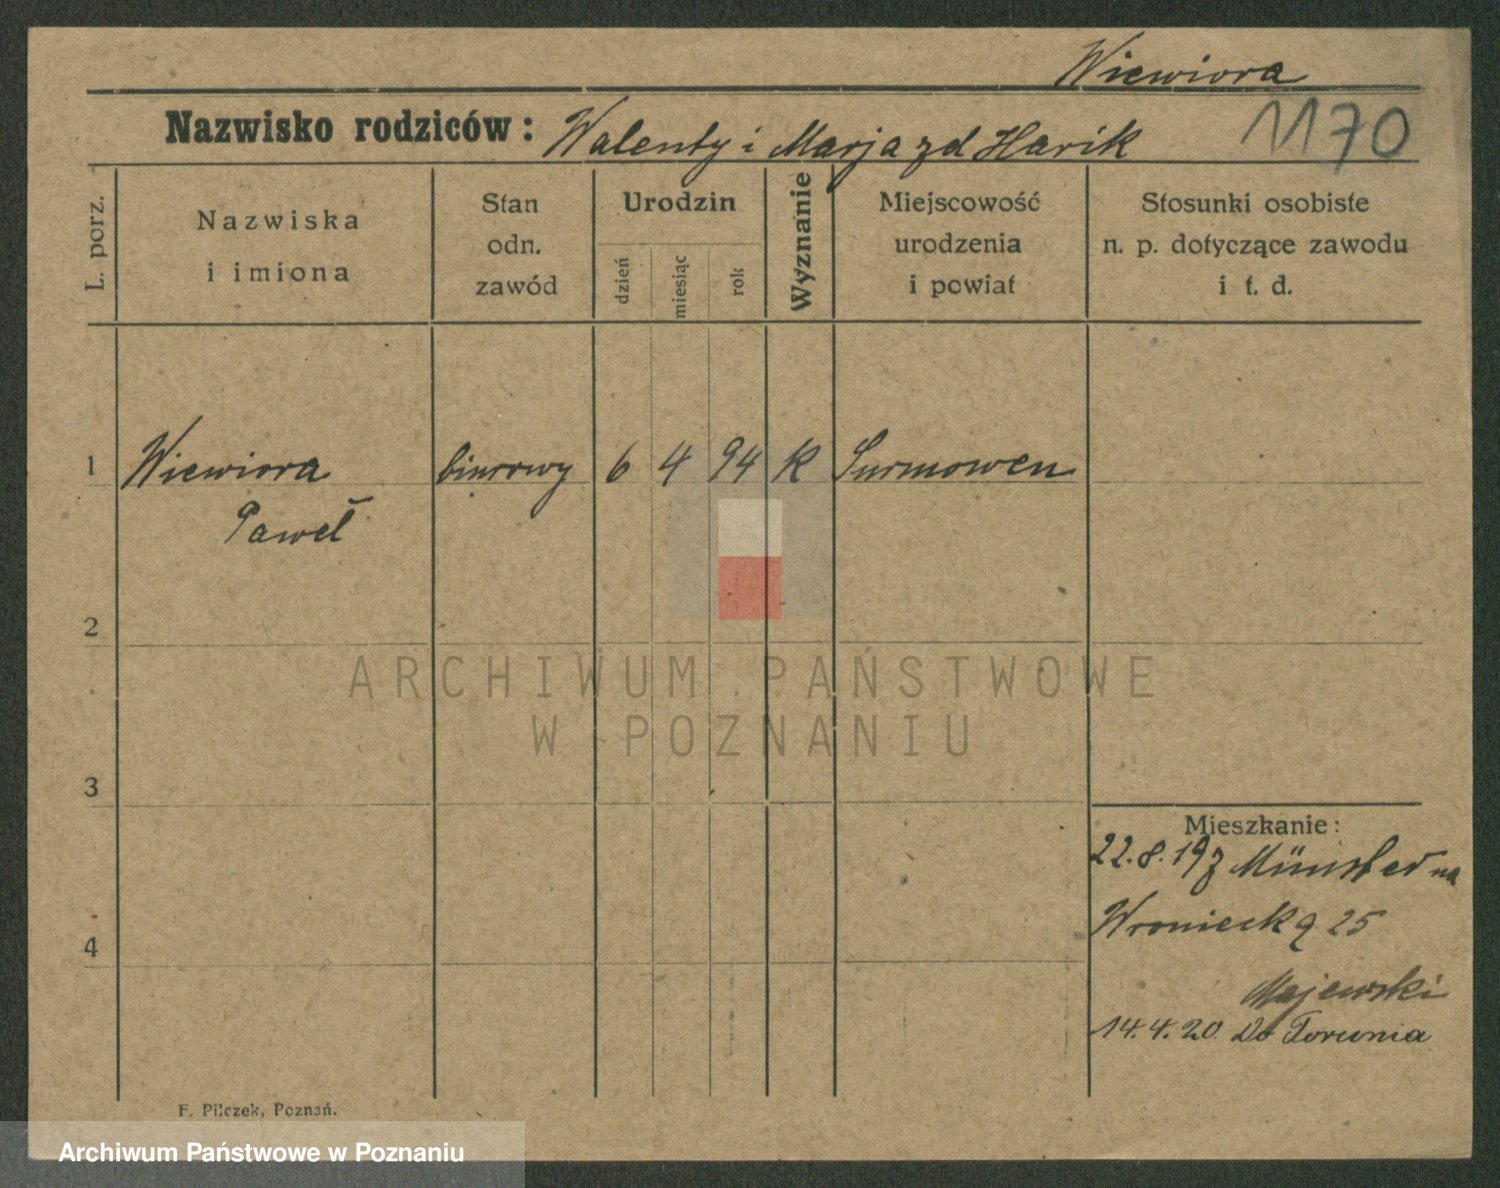 Wiewiora
Nazwisko rodziców: Walenty i Marja zd Harik
1170
L. porz.
Nazwiska
i imiona
Stan
odn.
zawód
Urodzin
dzień
miesiąc
rok
Wyznanie
Miejscowość
urodzenia
i powiat
Stosunki osobiste
n. p. dotyczące zawodu
i t. d.
1 Wiewiora biurowy 6 4 94 K Surmowen
Paweł
2
3
4
Mieszkanie:
22.8.19 z Münster na
Wroniecką 25
Majewski
14.4.20. Do Torunia
F. Pilczek, Poznań.
ARCHIWUM PAŃSTWOWE
W POZNANIU
Archiwum Państwowe w Poznaniu